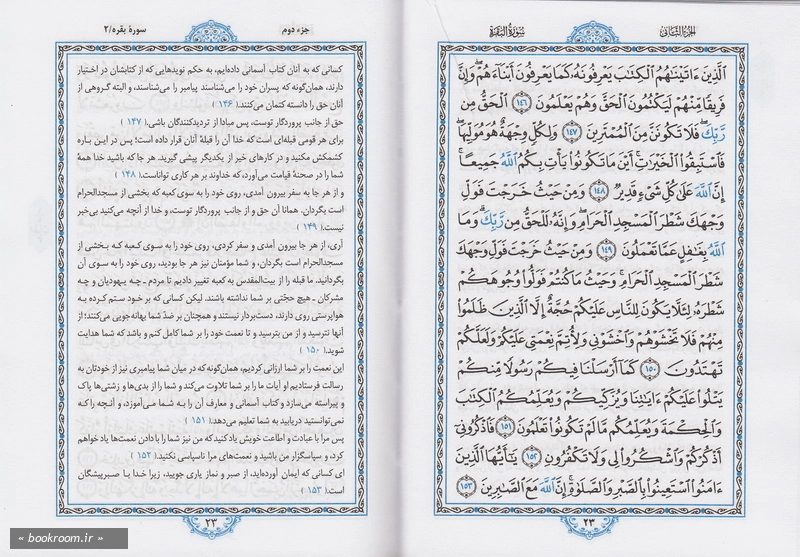 الجزء الثانی
سُورَةُ البَقَرَة
الَّذِينَ ءَاتَيْنَٰهُمُ الْكِتَٰبَ يَعْرِفُونَهُۥ كَمَا يَعْرِفُونَ أَبْنَآءَهُمْ ۖ وَإِنَّ
فَرِيقًا مِّنْهُمْ لَيَكْتُمُونَ الْحَقَّ وَهُمْ يَعْلَمُونَ ﴿١٤٦﴾ الْحَقُّ مِن
رَّبِّكَ ۖ فَلَا تَكُونَنَّ مِنَ الْمُمْتَرِينَ ﴿١٤٧﴾ وَلِكُلٍّ وِجْهَةٌ هُوَ مُوَلِّيهَا ۖ
فَاسْتَبِقُوا الْخَيْرَٰتِ ۚ أَيْنَ مَا تَكُونُوا يَأْتِ بِكُمُ اللَّهُ جَمِيعًا ۚ
إِنَّ اللَّهَ عَلَىٰ كُلِّ شَىْءٍ قَدِيرٌ ﴿١٤٨﴾ وَمِنْ حَيْثُ خَرَجْتَ فَوَلِّ
وَجْهَكَ شَطْرَ الْمَسْجِدِ الْحَرَامِ ۖ وَإِنَّهُۥ لَلْحَقُّ مِن رَّبِّكَ ۗ وَمَا
اللَّهُ بِغَٰفِلٍ عَمَّا تَعْمَلُونَ ﴿١٤٩﴾ وَمِنْ حَيْثُ خَرَجْتَ فَوَلِّ وَجْهَكَ
شَطْرَ الْمَسْجِدِ الْحَرَامِ ۚ وَحَيْثُ مَا كُنتُمْ فَوَلُّوا وُجُوهَكُمْ
شَطْرَهُۥ لِئَلَّا يَكُونَ لِلنَّاسِ عَلَيْكُمْ حُجَّةٌ إِلَّا الَّذِينَ ظَلَمُوا
مِنْهُمْ فَلَا تَخْشَوْهُمْ وَاخْشَوْنِى وَلِأُتِمَّ نِعْمَتِى عَلَيْكُمْ وَلَعَلَّكُمْ
تَهْتَدُونَ ﴿١٥٠﴾ كَمَآ أَرْسَلْنَا فِيكُمْ رَسُولًا مِّنكُمْ
يَتْلُوا عَلَيْكُمْ ءَايَٰتِنَا وَيُزَكِّيكُمْ وَيُعَلِّمُكُمُ الْكِتَٰبَ
وَالْحِكْمَةَ وَيُعَلِّمُكُم مَّا لَمْ تَكُونُوا تَعْلَمُونَ ﴿١٥١﴾ فَاذْكُرُونِىٓ
أَذْكُرْكُمْ وَاشْكُرُوا لِى وَلَا تَكْفُرُونِ ﴿١٥٢﴾ يَٰٓأَيُّهَا الَّذِينَ
ءَامَنُوا اسْتَعِينُوا بِالصَّبْرِ وَالصَّلَوٰةِ ۚ إِنَّ اللَّهَ مَعَ الصَّٰبِرِينَ ﴿١٥٣﴾
٢٣
جزء دوم
سورهٔ بقره/۲
کسانی که به آنان کتاب آسمانی داده‌ایم، به حکم نویدهایی که از کتابشان در اختیار
دارند، همان‌گونه که پسران خود را می‌شناسند پیامبر را می‌شناسند، و البته گروهی از
آنان حق را دانسته کتمان می‌کنند.( ۱۴۶ )
حق از جانب پروردگار توست، پس مبادا از تردیدکنندگان باشی.( ۱۴۷ )
برای هر قومی قبله‌ای است که خدا آن را قبلهٔ آنان قرار داده است؛ پس در این باره
کشمکش مکنید و در کارهای خیر از یکدیگر پیشی گیرید. هر جا که باشید خدا همهٔ
شما را در صحنهٔ قیامت می‌آورد، که خداوند بر هر کاری تواناست.( ۱۴۸ )
و از هر جا به سفر بیرون آمدی، روی خود را به سوی کعبه که بخشی از مسجدالحرام
است بگردان. همانا آن حق و از جانب پروردگار توست، و خدا از آنچه می‌کنید بی‌خبر
نیست.( ۱۴۹ )
آری، از هر جا بیرون آمدی و سفر کردی، روی خود را به سوی کعبه که بخشی از
مسجدالحرام است بگردان، و شما مؤمنان نیز هر جا بودید، روی خود را به سوی آن
بگردانید. ما قبله را از بیت‌المقدس به کعبه تغییر دادیم تا مردم ـ چه یهودیان و چه
مشرکان ـ هیچ حجّتی بر شما نداشته باشند. لیکن کسانی که بر خود ستم کرده به
هواپرستی روی دارند، دست‌بردار نیستند و همچنان بر ضدّ شما بهانه‌جویی می‌کنند؛ از
آنها نترسید و از من بترسید و تا نعمت خود را بر شما کامل کنم و باشد که شما هدایت
شوید.( ۱۵۰ )
این نعمت را بر شما ارزانی کردیم، همان‌گونه که در میان شما پیامبری نیز از خودتان به
رسالت فرستادیم او آیات ما را بر شما تلاوت می‌کند و شما را از بدی‌ها و زشتی‌ها پاک
و پیراسته می‌سازد و کتاب آسمانی و معارف آن را به شما می‌آموزد، و آنچه را که
نمی‌توانستید دریابید به شما تعلیم می‌دهد.( ۱۵۱ )
پس مرا با عبادت و اطاعت خویش یاد کنید که من نیز شما را با دادن نعمت‌ها یاد خواهم
کرد، و سپاسگزار من باشید و نعمت‌های مرا ناسپاسی نکنید.( ۱۵۲ )
ای کسانی که ایمان آورده‌اید، از صبر و نماز یاری جویید، زیرا خدا با صبرپیشگان
است.( ۱۵۳ )
۲۳
« bookroom.ir »